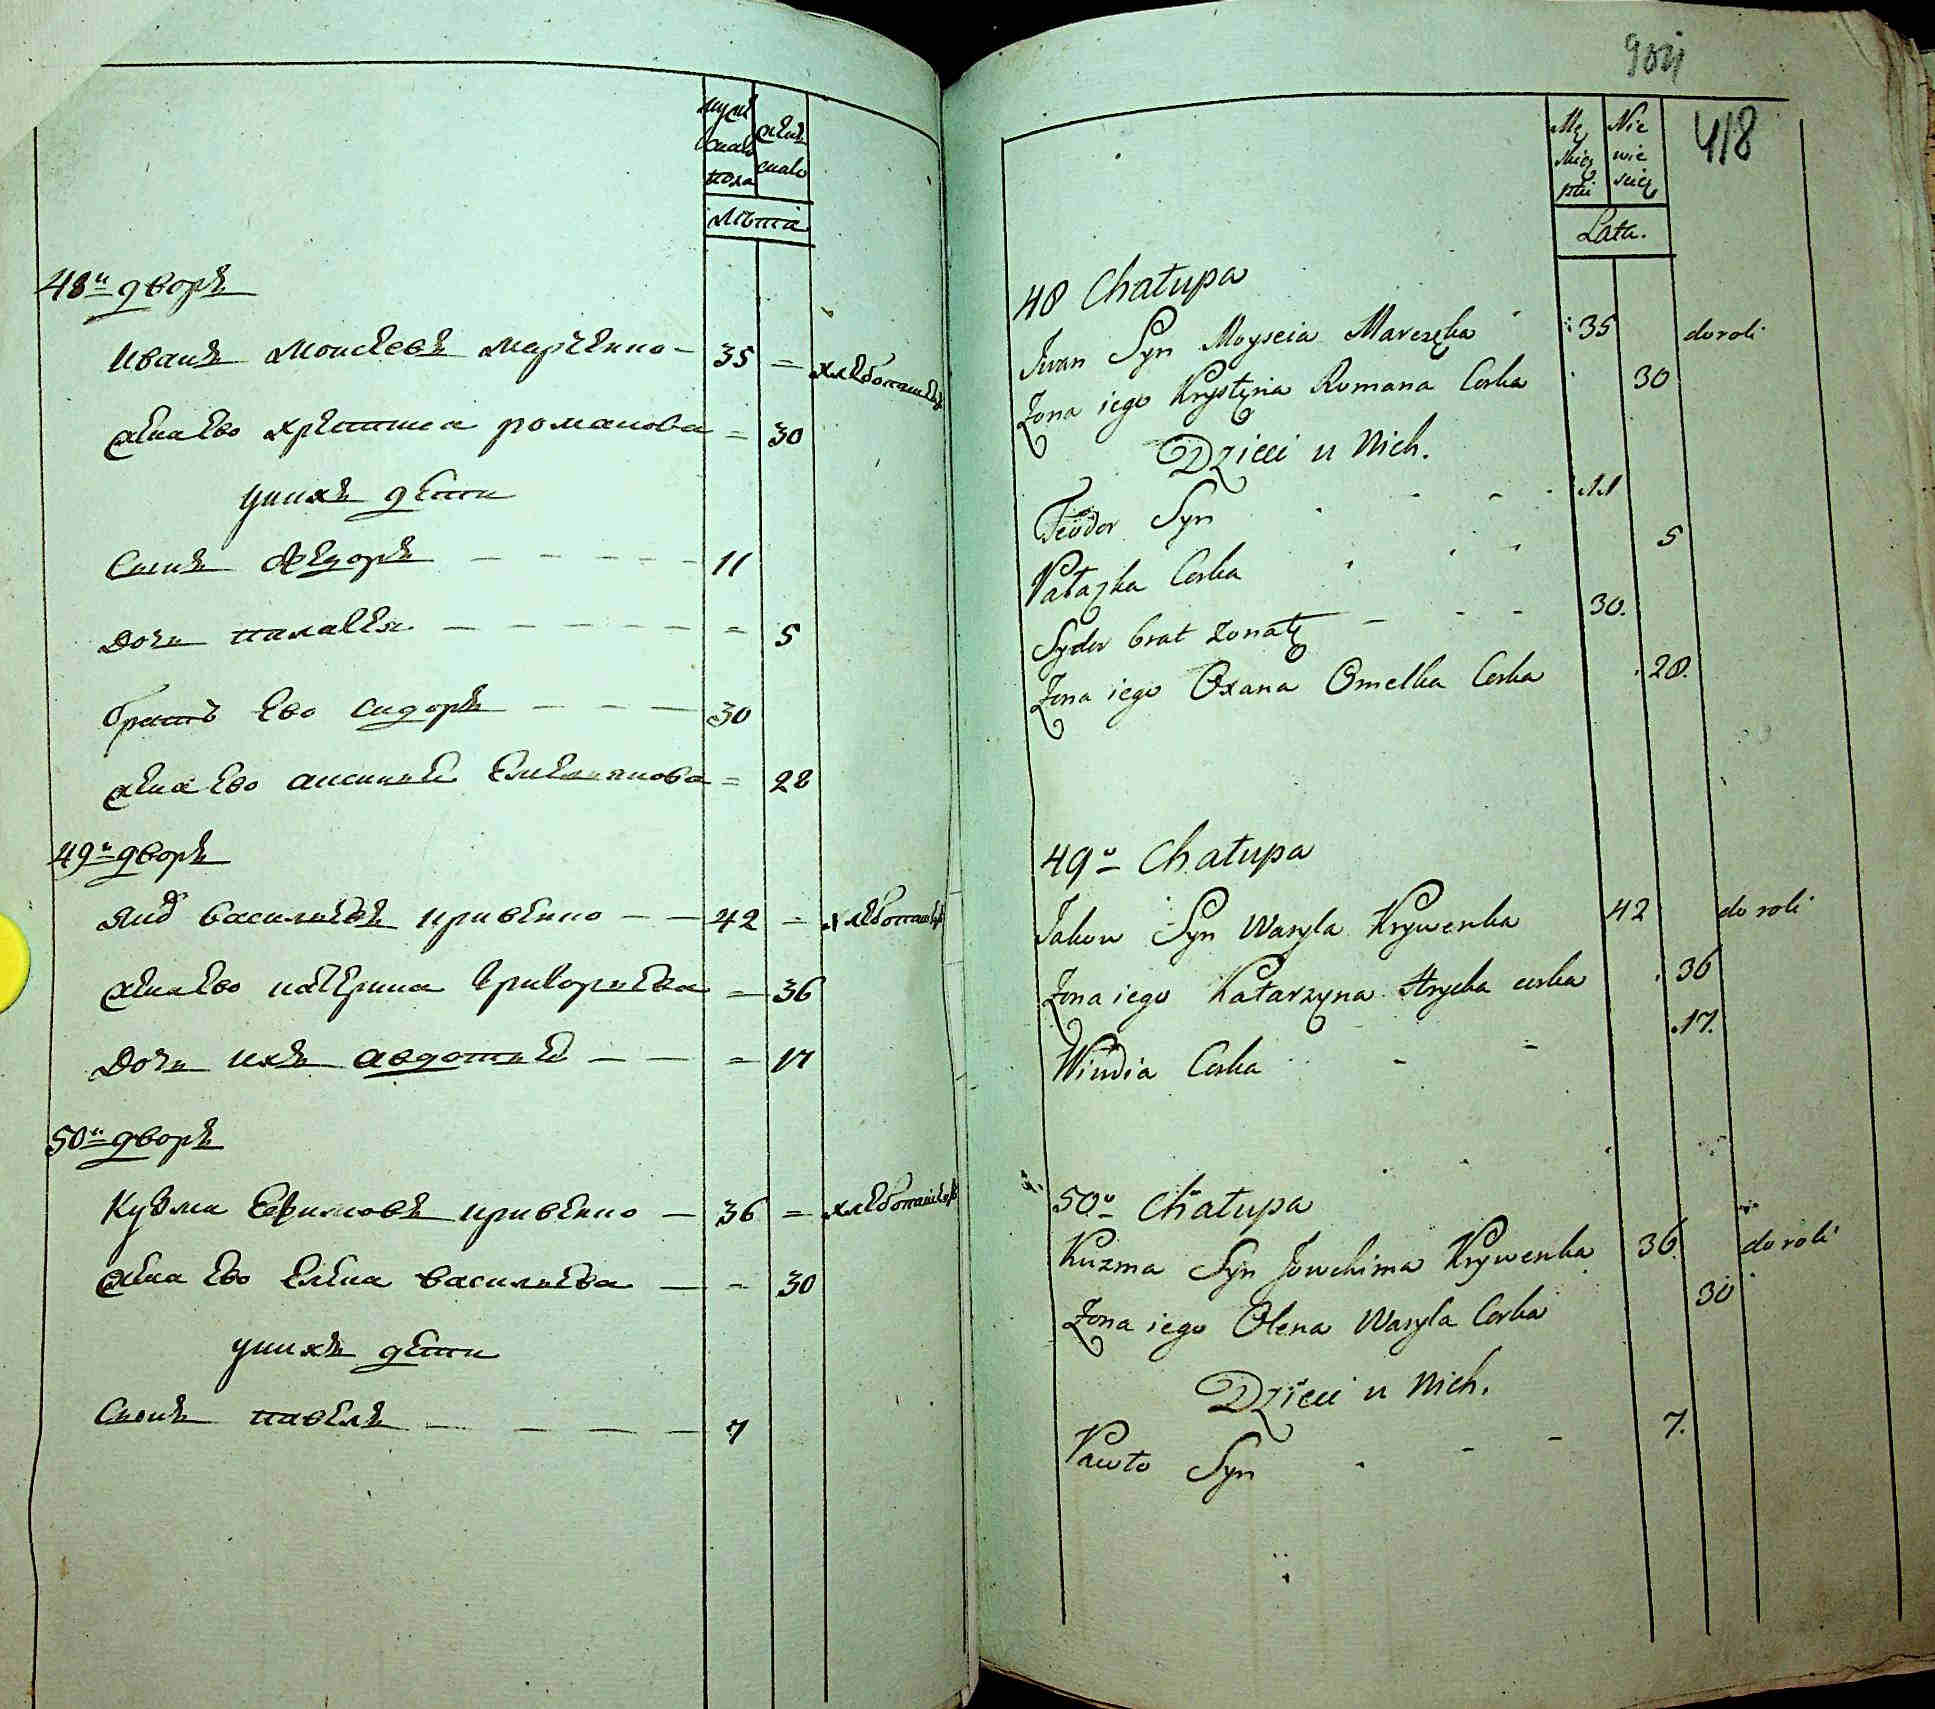 мужеска пола
женска
Лѣта
48й дворъ
Иванъ Моисѣевъ Марченко 35 = хлебопашецъ
жена ево Христина Романова = 30
у нихъ дети
Сынъ Федоръ 11
Дочь Палажея = 5
братъ ево Сидоръ 30
жена ево Аксинья Емельянова = 28
49й дворъ
Яковъ Васильевъ Кривенко 42 = хлебопашецъ
жена ево Катерина Григорьева = 36
Дочь ихъ Авдотья = 17
50й дворъ
Кузма Ефимовъ Кривенко 36 = хлебопашецъ
жена ево Елена Васильева = 30
у нихъ дети
Сынъ Павелъ 7
904
418
Męskiey płci
Niewieściey
Lata.
48 Chałupa
Iwan Syn Moyseia Marczęka 35 do roli
Żona iego Krystyna Romana Corka 30
Dzieci u Nich.
Teodor Syn 11
Pałazka Corka 5
Sydor brat żonaty 30.
Żona iego Oxana Omelka Corka 28.
49a Chałupa
Jakow Syn Wasyla Krywenka 42 do roli
Żona iego Katarzyna Hryćka corka 36
Wiwdia Corka 17.
50a Chałupa
Kuzma Syn Jowchima Krywenka 36. do roli
Żona iego Olena Wasyla Corka 30
Dzieci u Nich.
Pawło Syn 7.